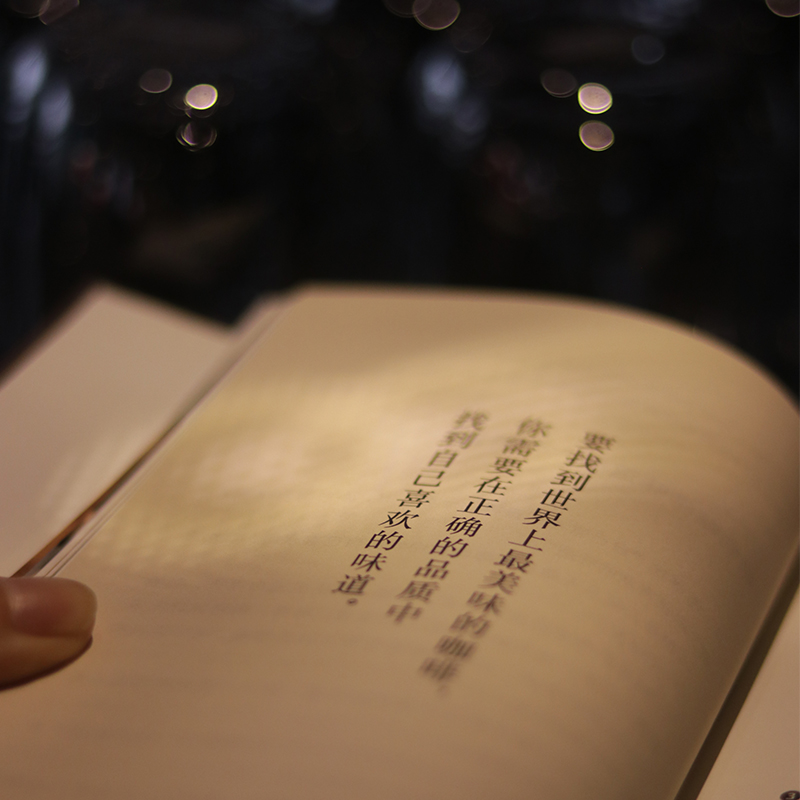 要找到世界上最美味的咖啡，
你需要在正确的品质中
找到自己喜欢的味道。
3